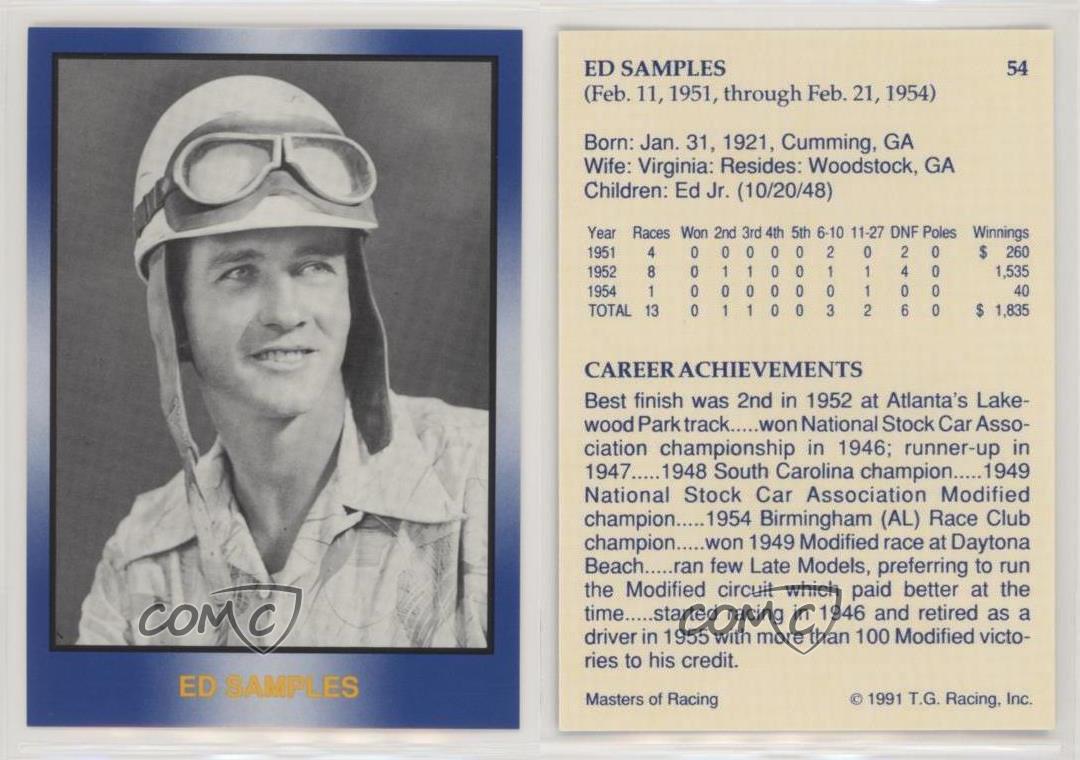 ED SAMPLES
COMC
ED SAMPLES 54
(Feb. 11, 1951, through Feb. 21, 1954)
Born: Jan. 31, 1921, Cumming, GA
Wife: Virginia: Resides: Woodstock, GA
Children: Ed Jr. (10/20/48)
Year Races Won 2nd 3rd 4th 5th 6-10 11-27 DNF Poles Winnings
1951 4 0 0 0 0 0 2 0 2 0 $ 260
1952 8 0 1 1 0 0 1 1 4 0 1,535
1954 1 0 0 0 0 0 0 1 0 0 40
TOTAL 13 0 1 1 0 0 3 2 6 0 $ 1,835
CAREER ACHIEVEMENTS
Best finish was 2nd in 1952 at Atlanta's Lake-
wood Park track.....won National Stock Car Asso-
ciation championship in 1946; runner-up in
1947.....1948 South Carolina champion.....1949
National Stock Car Association Modified
champion.....1954 Birmingham (AL) Race Club
champion.....won 1949 Modified race at Daytona
Beach.....ran few Late Models, preferring to run
the Modified circuit which paid better at the
time.....started racing in 1946 and retired as a
driver in 1955 with more than 100 Modified victo-
ries to his credit.
COMC
Masters of Racing © 1991 T.G. Racing, Inc.